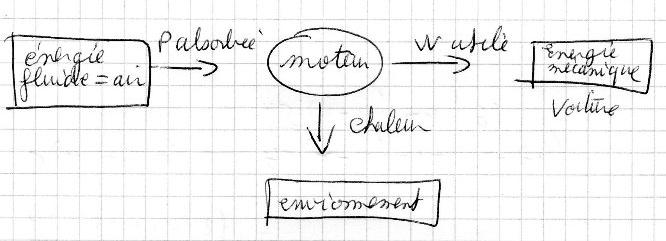 énergie
fluide = air
P absorbée
moteur
W utile
Energie
mécanique
Voiture
chaleur
environnement